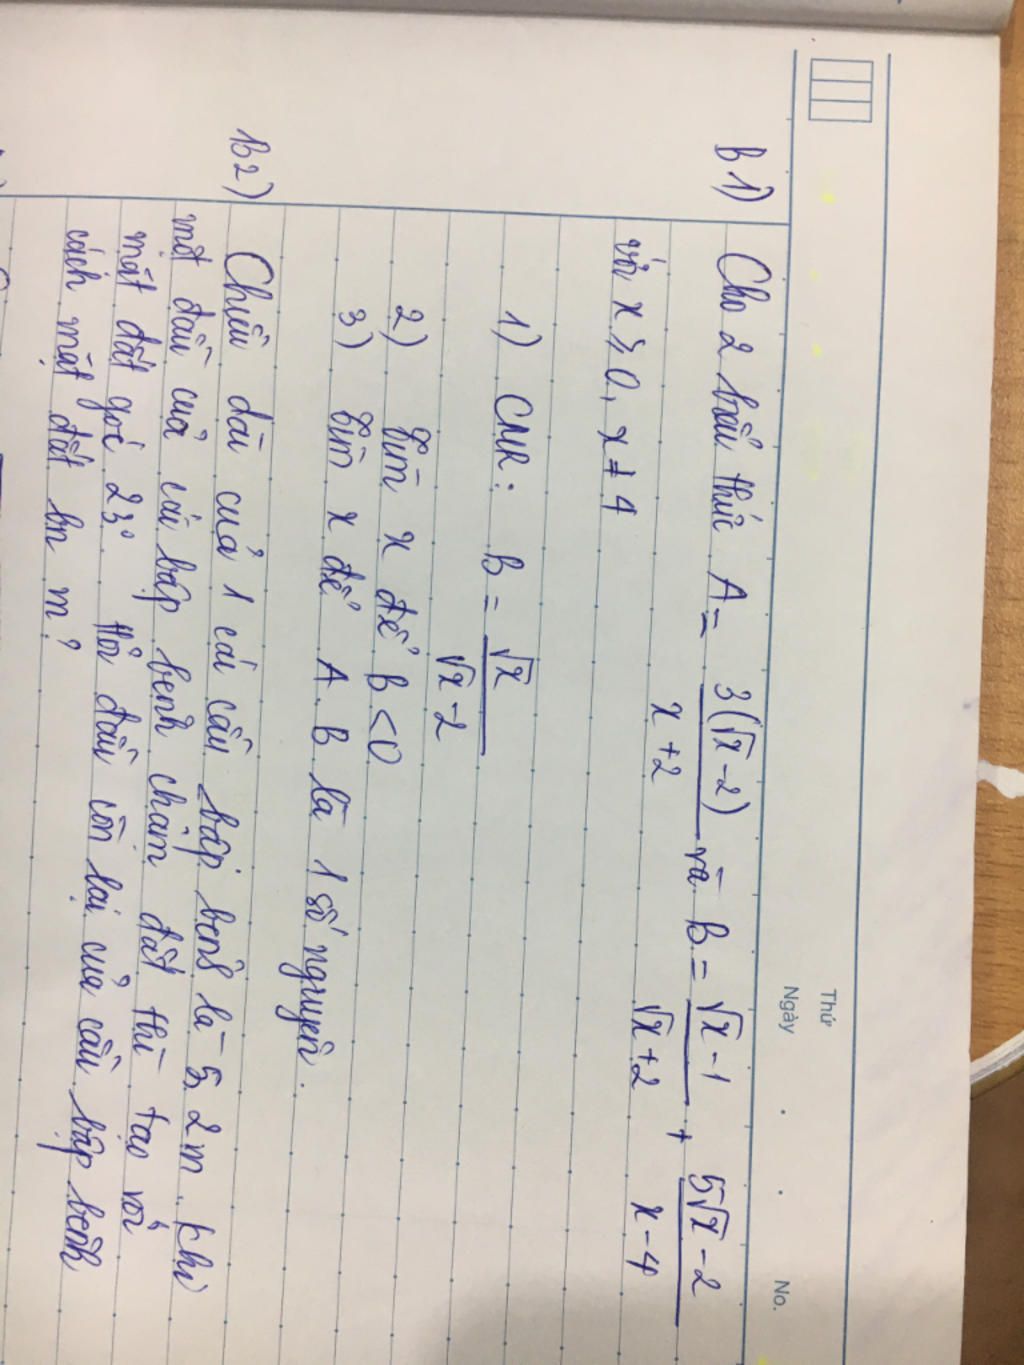 Thứ
Ngày . . No.
B1) Cho 2 biểu thức A = 3(√x - 2) / x + 2 và B = √x - 1 / √x + 2 + 5√x - 2 / x - 4
với x ≥ 0, x ≠ 4
1) CMR: B = √x / √x - 2
2) Tìm x để B < 0
3) Tìm x để A.B là 1 số nguyên.
B2) Chiều dài của 1 cái cầu bập bênh là 5,2m. Khi
một đầu của cái bập bênh chạm đất thì tạo với
mặt đất góc 23°. Hỏi đầu còn lại của cầu bập bênh
cách mặt đất bn m?